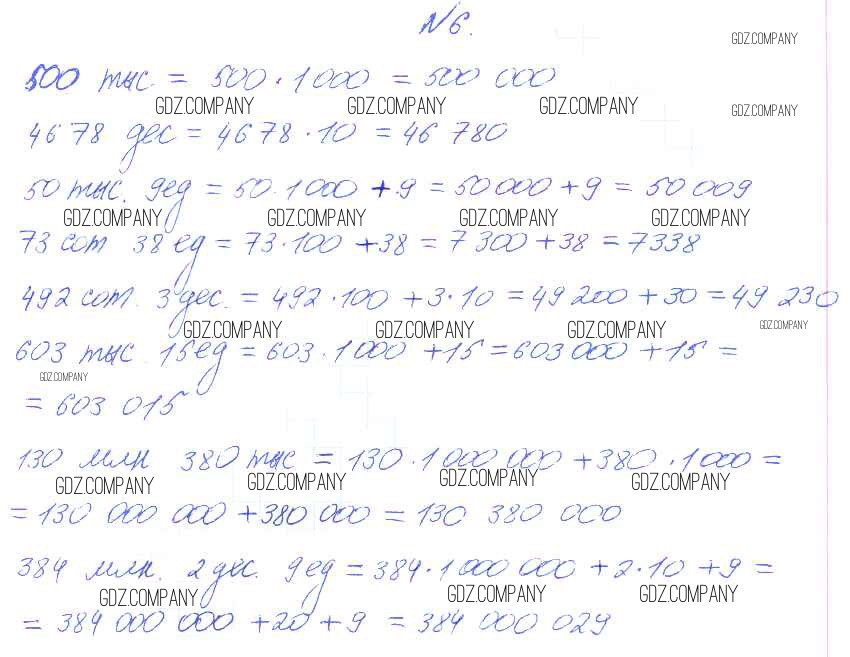 №6.
GDZ.COMPANY
500 тыс. = 500 · 1 000 = 500 000
GDZ.COMPANY GDZ.COMPANY GDZ.COMPANY GDZ.COMPANY
4678 дес = 4678 · 10 = 46 780
50 тыс. 9ед = 50 · 1 000 + 9 = 50 000 + 9 = 50 009
GDZ.COMPANY GDZ.COMPANY GDZ.COMPANY GDZ.COMPANY
73 сот 38 ед = 73 · 100 + 38 = 7 300 + 38 = 7338
492 сот. 3 дес. = 492 · 100 + 3 · 10 = 49 200 + 30 = 49 230
GDZ.COMPANY GDZ.COMPANY GDZ.COMPANY GDZ.COMPANY
603 тыс. 15ед = 603 · 1 000 + 15 = 603 000 + 15 =
GDZ.COMPANY
= 603 015
130 млн 380 тыс = 130 · 1 000 000 + 380 · 1 000 =
GDZ.COMPANY GDZ.COMPANY GDZ.COMPANY GDZ.COMPANY
= 130 000 000 + 380 000 = 130 380 000
384 млн. 2 дес. 9 ед = 384 · 1 000 000 + 2 · 10 + 9 =
GDZ.COMPANY GDZ.COMPANY GDZ.COMPANY
= 384 000 000 + 20 + 9 = 384 000 029